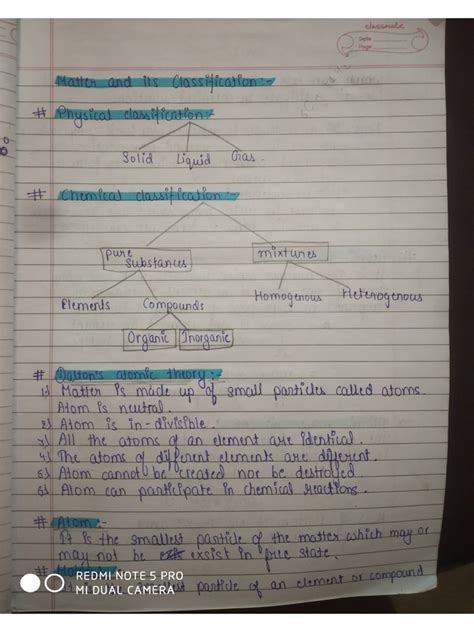 classmate
Date
Page
Matter and its Classification:-
# Physical classification:-
Solid Liquid Gas.
# Chemical classification:-
Pure Substances
mixtures
Elements Compounds
Homogenous Heterogenous
Organic Inorganic
# Dalton's atomic theory:-
1) Matter is made up of small particles called atoms.
Atom is neutral.
2) Atom is in-divisible.
3) All the atoms of an element are identical.
4) The atoms of different elements are different.
5) Atom cannot be created nor be destroyed
6) Atom can participate in chemical reactions.
# Atom:-
It is the smallest particle of the matter which may or
may not be exsist in free state.
#
smallest particle of an element or compound
REDMI NOTE 5 PRO
MI DUAL CAMERA